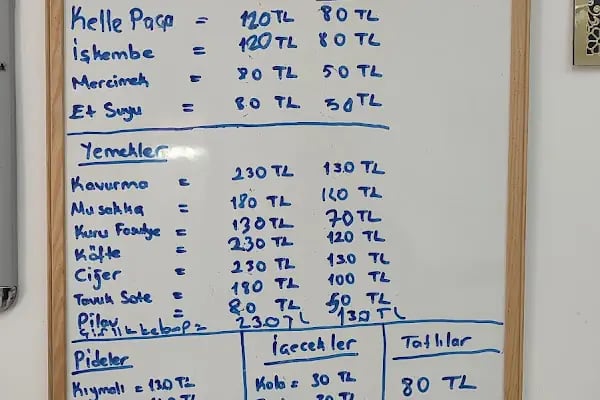 Kelle Paça = 120 TL 80 TL
İşkembe = 120 TL 80 TL
Mercimek = 80 TL 50 TL
Et Suyu = 80 TL 50 TL
Yemekler
Kavurma = 230 TL 130 TL
Musakka = 180 TL 110 TL
Kuru Fasulye = 130 TL 70 TL
Köfte = 230 TL 120 TL
Ciğer = 230 TL 130 TL
Tavuk Sote = 180 TL 100 TL
Pilav = 80 TL 50 TL
kebap = 230 TL 130 TL
Pideler
Kıymalı = 130 TL
İçecekler
Kola = 30 TL
Tatlılar
80 TL